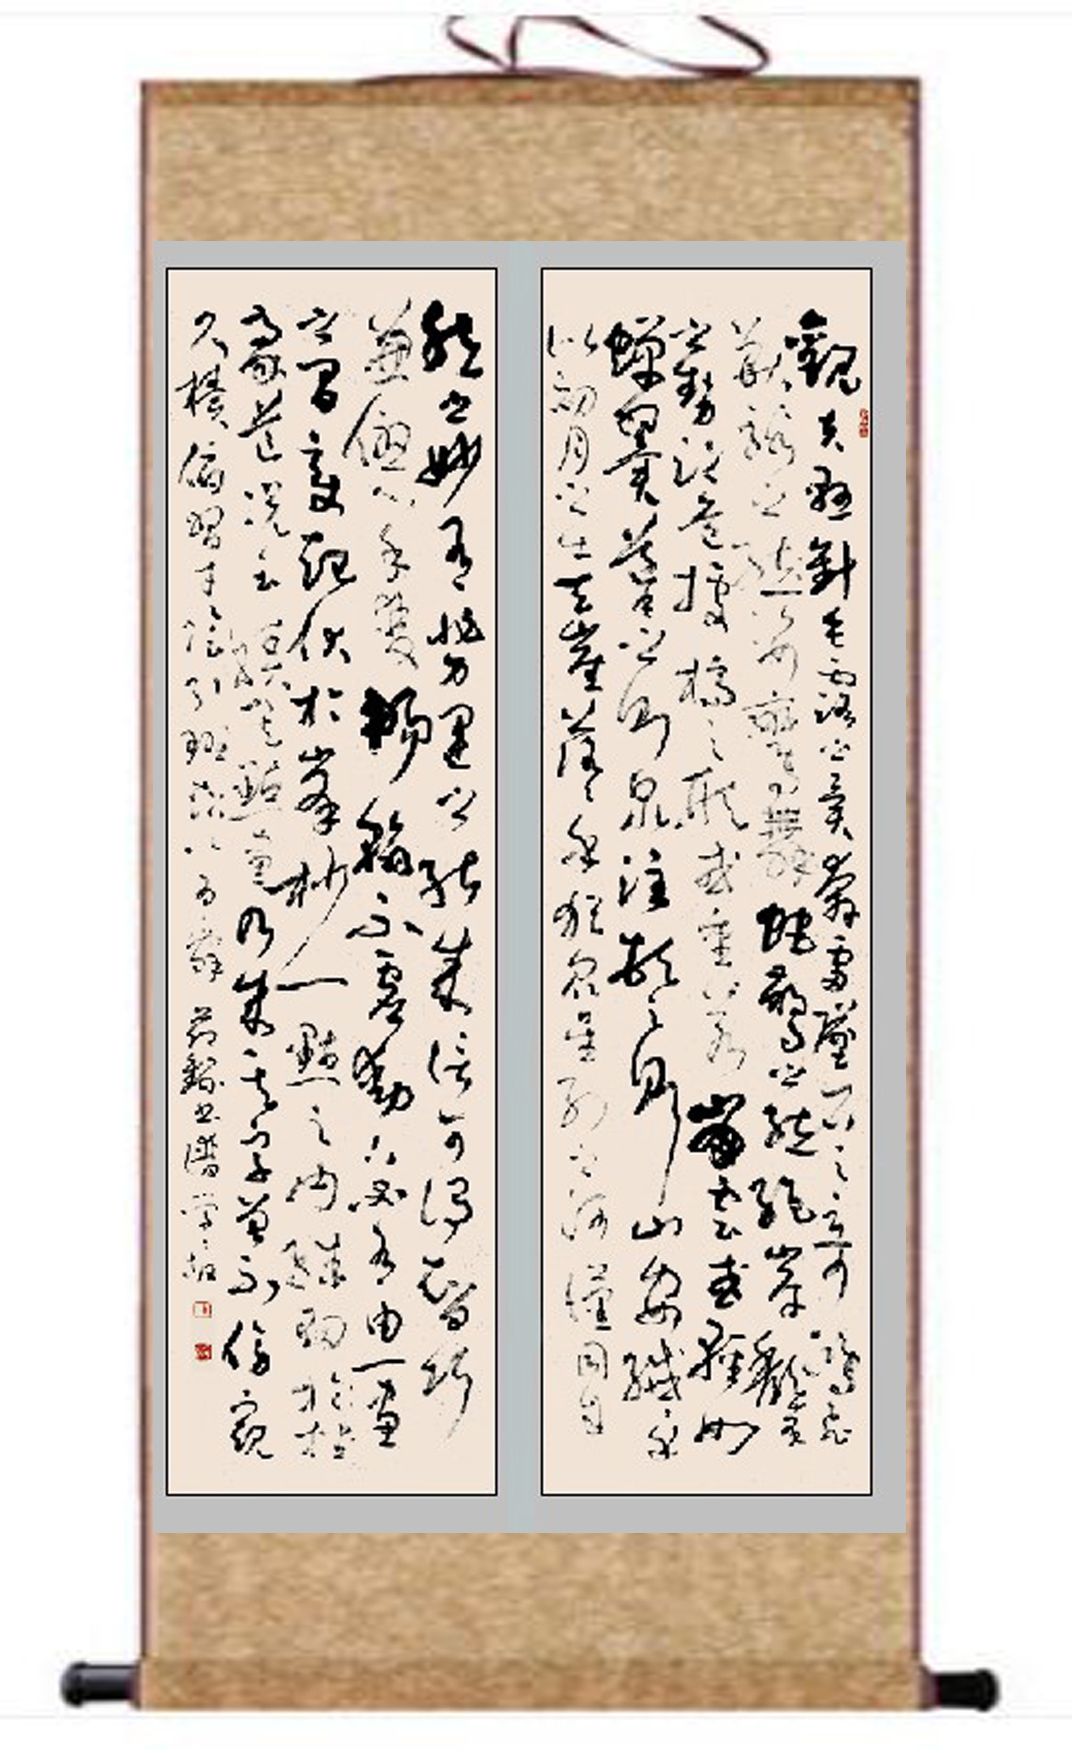 觀夫懸針垂露之異奔雷墜石之奇鴻飛
獸駭之資鸞舞蛇驚之態絕岸頹峯
之勢臨危據槁之形或重若崩雲或輕如
蟬翼導之則泉注頓之則山安纖纖乎
似初月之出天崖落落乎猶眾星之列河漢同自
然之妙有非力運之能成信可謂智巧
兼優心手雙暢翰不虛動下必有由一畫
之間變起伏於峯杪一點之內殊衄挫於
毫芒況云積其點畫乃成其字曾不傍窺
尺櫝俯習寸陰引班超以為辭 節錄書譜